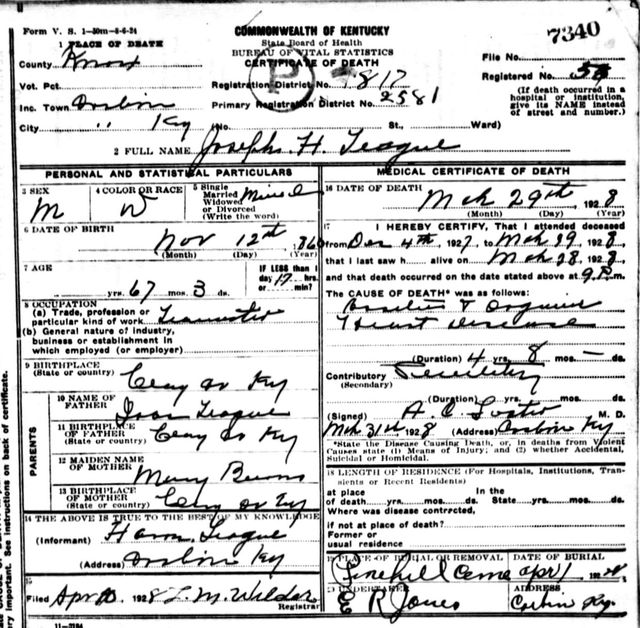 Form V. S. 1-30m-8-6-24
COMMONWEALTH OF KENTUCKY
State Board of Health
BUREAU OF VITAL STATISTICS
CERTIFICATE OF DEATH
7340
1 PLACE OF DEATH
County Knox
File No.
Registered No. 58
(If death occurred in a hospital or institution, give its NAME instead of street and number.)
Vot. Pct.
Registration District No. 817
P
Inc. Town Corbin
Primary Registration District No. 2581
City " Ky (No. St., Ward)
2 FULL NAME Joseph H. Teague
PERSONAL AND STATISTICAL PARTICULARS
3 SEX
M
4 COLOR OR RACE
W
5 Single
Married
Widowed
or Divorced
(Write the word)
6 DATE OF BIRTH
Nov 12th, 186
(Month) (Day) (Year)
7 AGE
yrs. 67 mos. 3 ds.
If LESS than 1
day 17 hrs.
or min?
8 OCCUPATION
(a) Trade, profession or
particular kind of work Teamster
(b) General nature of industry,
business or establishment in
which employed (or employer)
9 BIRTHPLACE
(State or country) Clay Co Ky
PARENTS
10 NAME OF
FATHER Teague
11 BIRTHPLACE
OF FATHER
(State or country) Clay Co Ky
12 MAIDEN NAME
OF MOTHER Mary Burns
13 BIRTHPLACE
OF MOTHER
(State or country) Clay Co Ky
14 THE ABOVE IS TRUE TO THE BEST OF MY KNOWLEDGE
(Informant) Teague
(Address) Corbin Ky
15
Filed Apr 10 1928 L. M. Wilder
Registrar
11-3184
MEDICAL CERTIFICATE OF DEATH
16 DATE OF DEATH
Mch 29th, 1928
(Month) (Day) (Year)
17 I HEREBY CERTIFY, That I attended deceased
from Dec 4th, 1927, to Mch 29 1928
that I last saw h alive on Mch 28 1928
and that death occurred on the date stated above at 9 P.m.
The CAUSE OF DEATH* was as follows:
Heart Disease
(Duration) 4 yrs. 8 mos. —
Contributory
(Secondary)
(Duration) yrs. mos. ds.
(Signed) A. C. M. D.
Mch 31st, 1928 (Address) Corbin Ky
*State the Disease Causing Death, or, in deaths from Violent
Causes state (1) Means of Injury; and (2) whether Accidental,
Suicidal or Homicidal.
18 LENGTH OF RESIDENCE (For Hospitals, Institutions, Tran-
sients or Recent Residents)
at place In the
of death yrs. mos. ds. State yrs. mos. ds.
Where was disease contrcted,
if not at place of death?
Former or
usual residence
19 PLACE OF BURIAL OR REMOVAL DATE OF BURIAL
Pinehill Ceme Apr 1 1928
20 UNDERTAKER ADDRESS
E R Jones Corbin Ky.
See instructions on back of certificate.